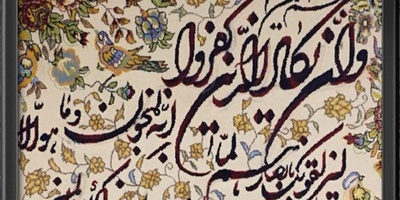 وان یکاد الذین کفروا
لیزلقونک بابصارهم لما
انه لمجنون وما هو الا